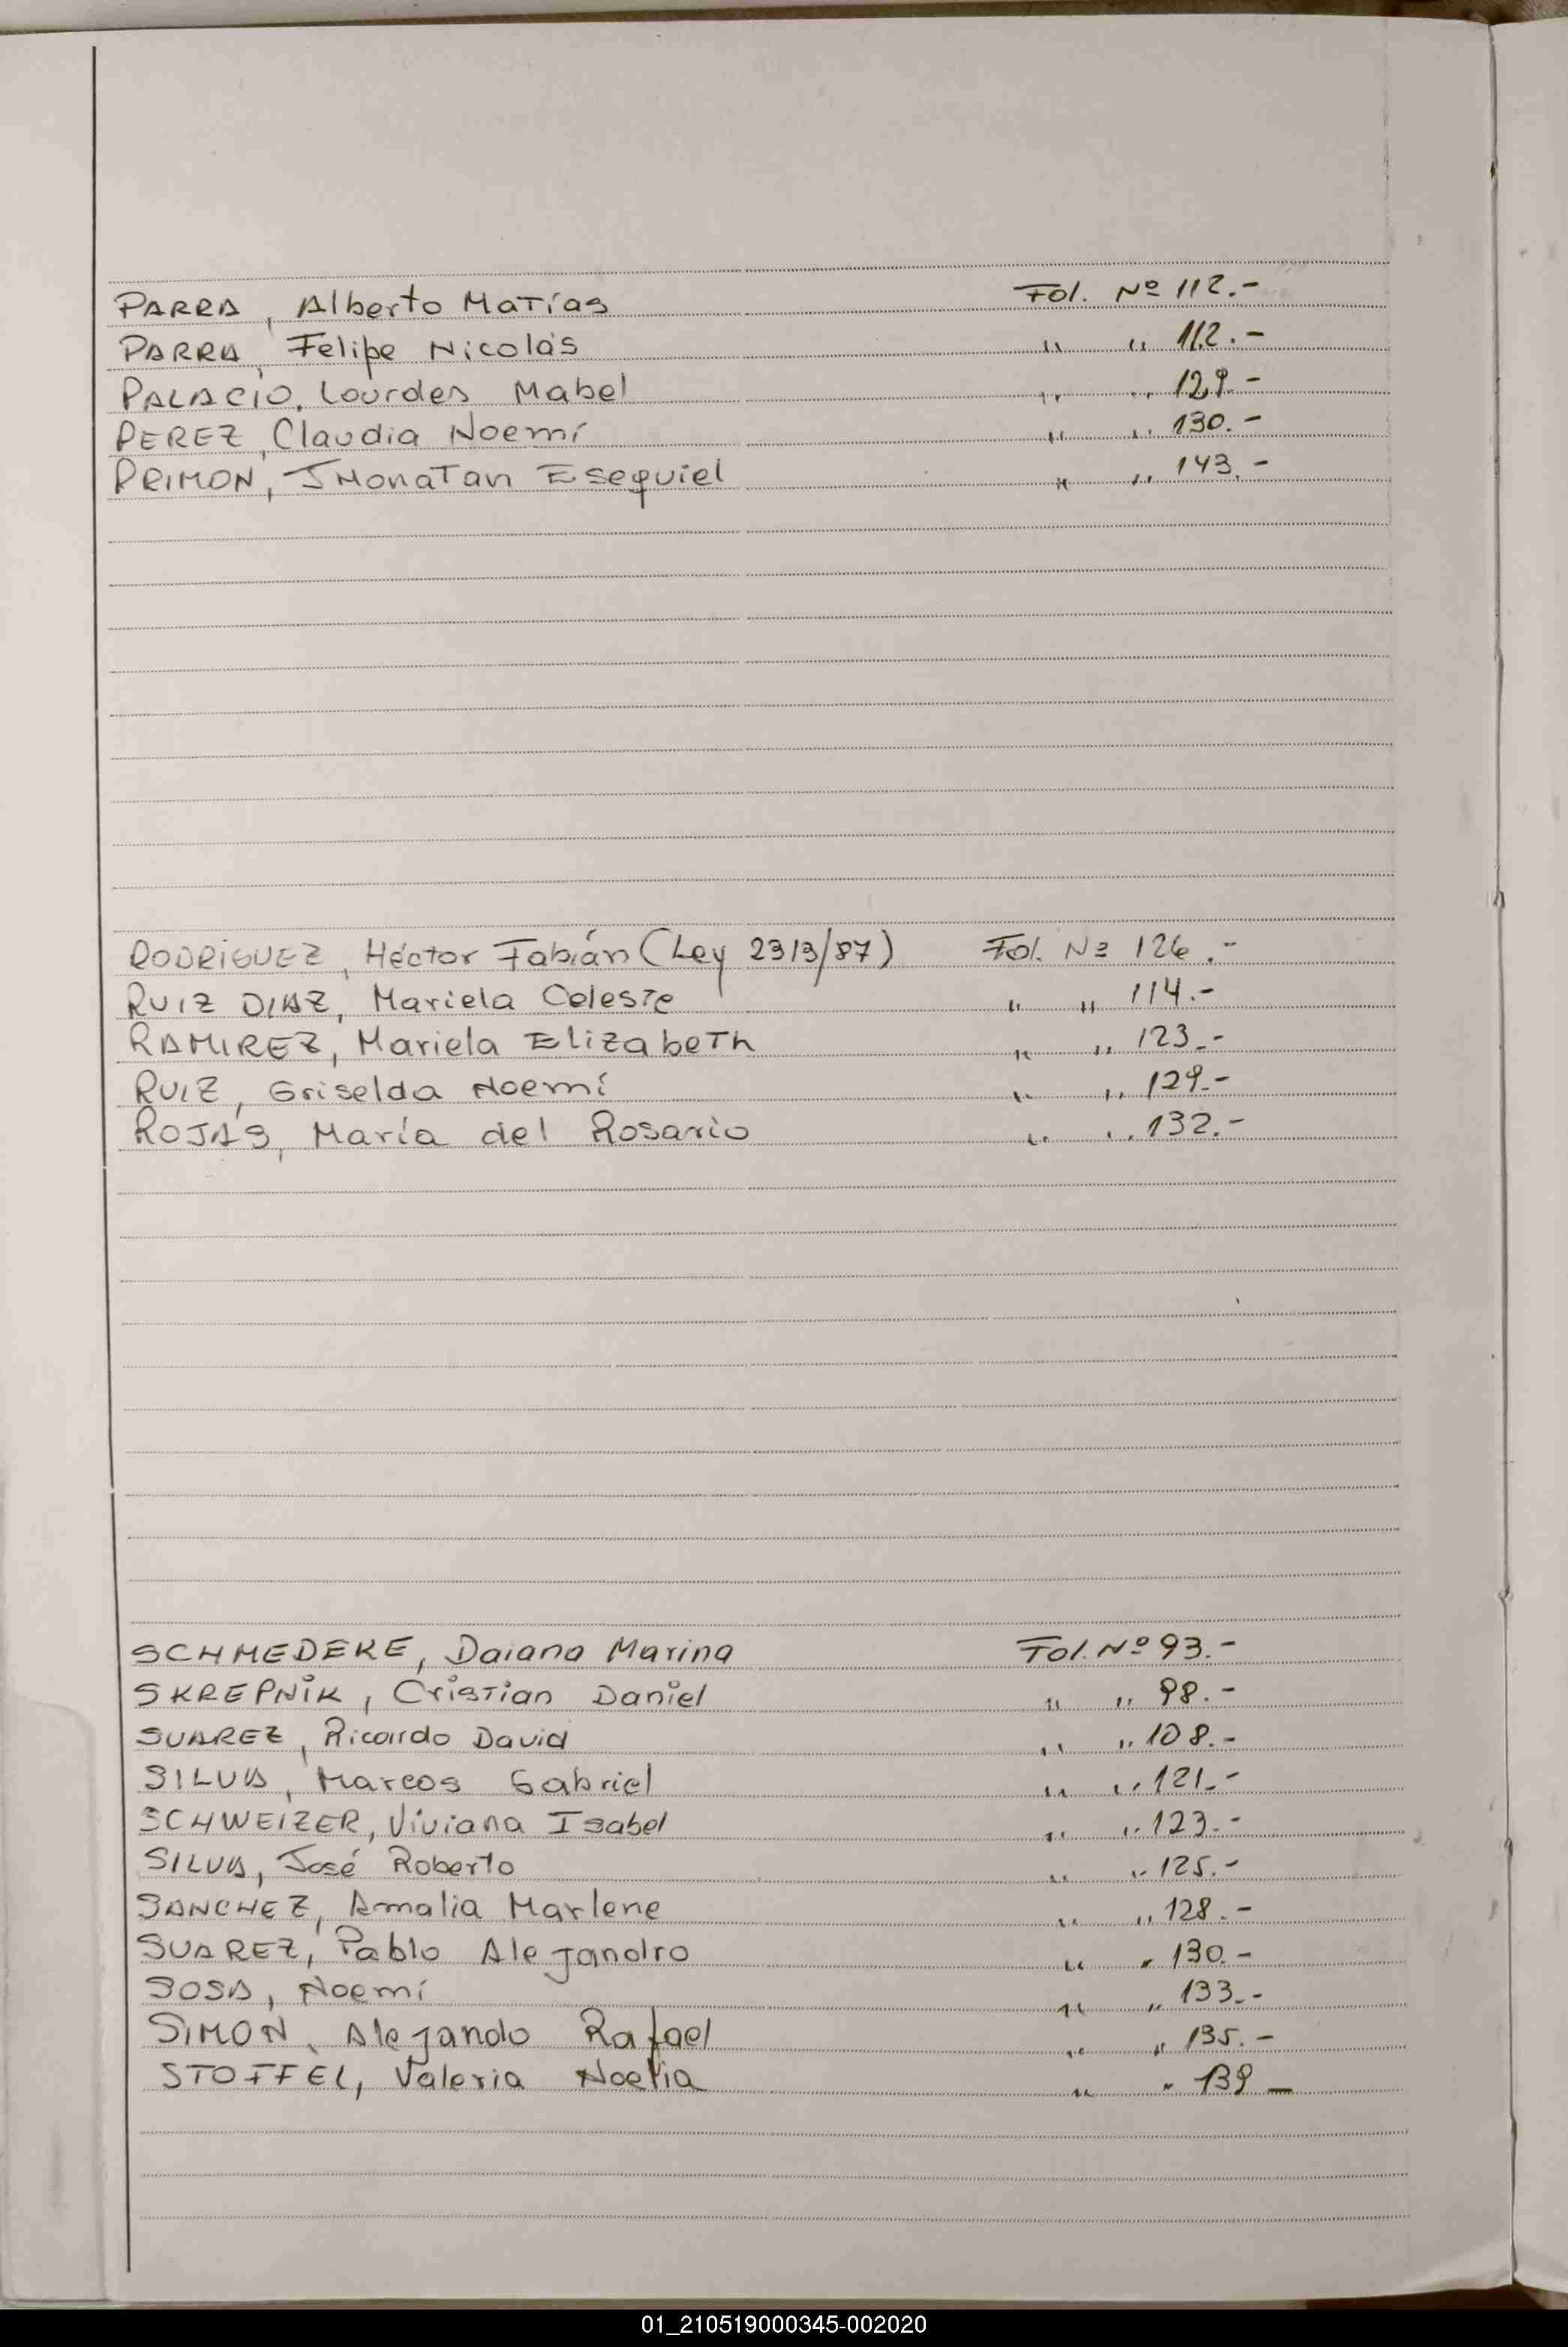 PARRA, Alberto Matías Fol. Nº 112.-
PARRA, Felipe Nicolás " " 112.-
PALACIO, Lourdes Mabel " " 129.-
PEREZ, Claudia Noemí " " 130.-
PRIMON, JHonatan Esequiel " " 143.-
RODRIGUEZ, Héctor Fabián (Ley 2313/87) Fol. Nº 126.-
RUIZ DIAZ, Mariela Celeste " " 114.-
RAMIREZ, Mariela Elizabeth " " 123.-
RUIZ, Griselda Noemí " " 129.-
ROJAS, María del Rosario " " 132.-
SCHMEDEKE, Daiana Marina Fol. Nº 93.-
SKREPNIK, Cristian Daniel " " 98.-
SUAREZ, Ricardo David " " 108.-
SILVA, Marcos Gabriel " " 121.-
SCHWEIZER, Viviana Isabel " " 123.-
SILVA, José Roberto " " 125.-
SANCHEZ, Amalia Marlene " " 128.-
SUAREZ, Pablo Alejandro " " 130.-
SOSA, Noemí " " 133.-
SIMON, Alejando Rafael " " 135.-
STOFFEL, Valeria Noelia " " 139-
01_210519000345-002020